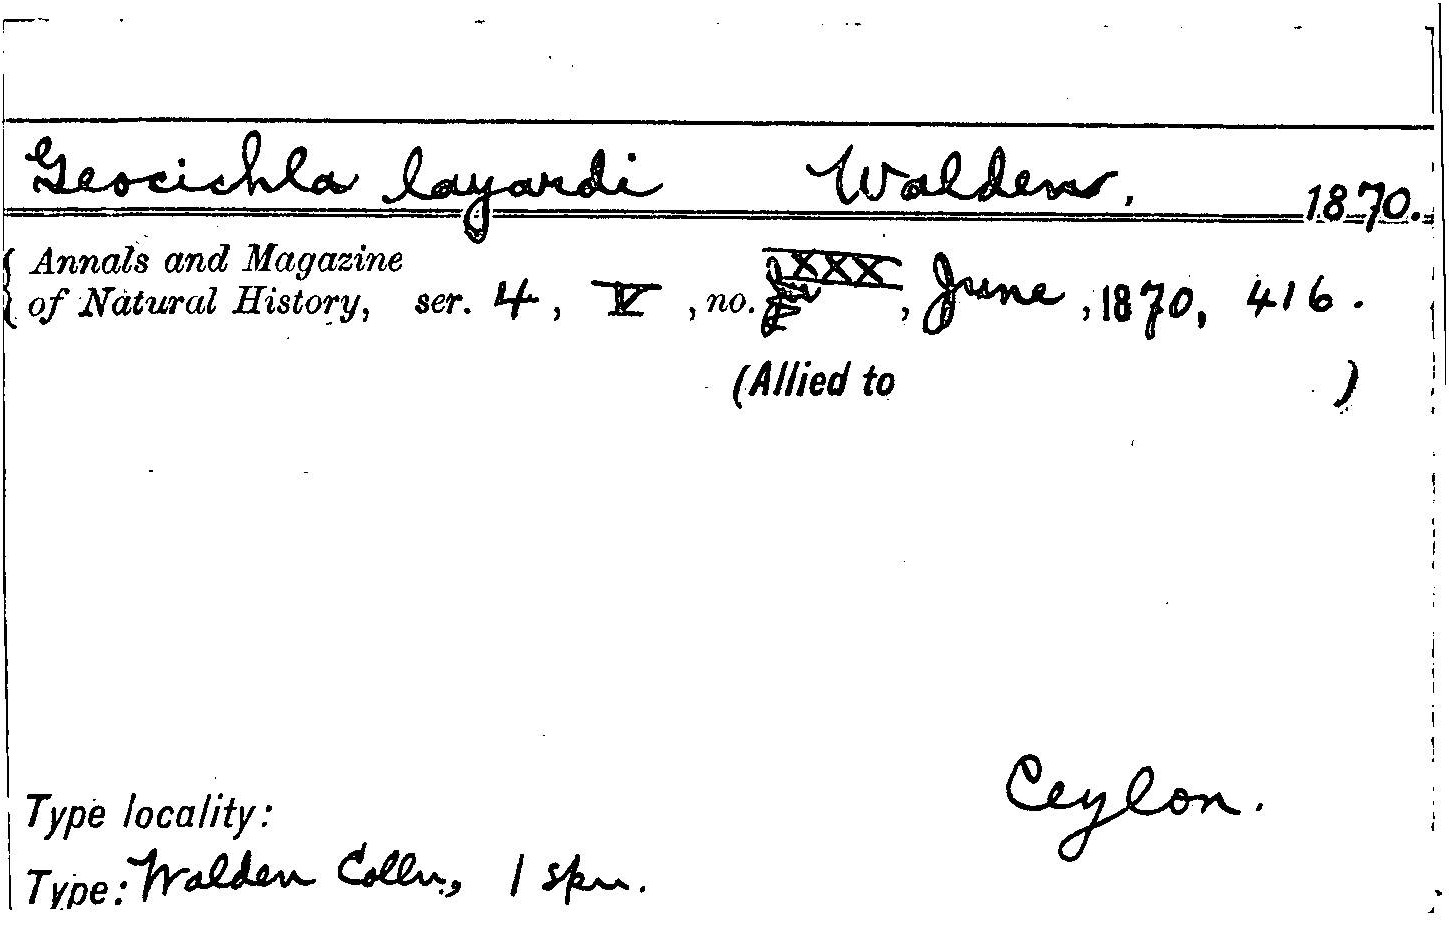 Geocichla layardi Walden, 1870.
Annals and Magazine
of Natural History, ser. 4, V, no. XXX, June, 1870, 416.
(Allied to )
Ceylon.
Type locality:
Type: Walden Colln, 1 spn.